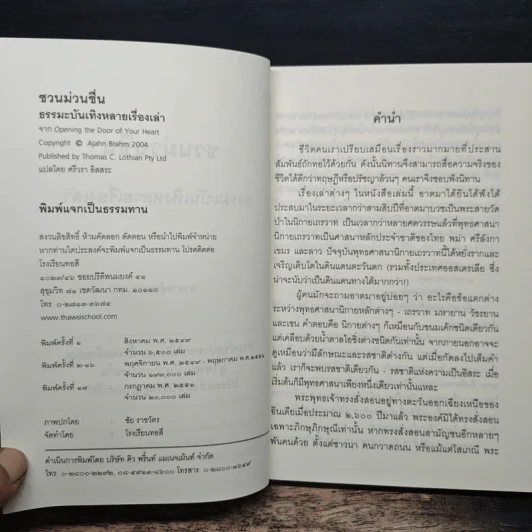 ชวนม่วนชื่น
ธรรมะบันเทิงหลายเรื่องเล่า
จาก Opening the Door of Your Heart
Copyright © Ajahn Brahm 2004
Published by Thomas C. Lothian Pty Ltd
แปลโดย ศรีวรา อิสสระ
พิมพ์แจกเป็นธรรมทาน
สงวนลิขสิทธิ์ ห้ามคัดลอก ตัดตอน หรือนำไปพิมพ์จำหน่าย
หากท่านใดประสงค์จะพิมพ์แจกเป็นธรรมทาน โปรดติดต่อ
โรงเรียนทอสี
๑๐๒๓/๔๖ ซอยปรีดีพนมยงค์ ๔๑
สุขุมวิท ๗๑ เขตวัฒนา กทม. ๑๐๑๑๐
โทร. ๐-๒๗๑๓-๓๖๗๔
www.thawsischool.com
พิมพ์ครั้งที่ ๑ สิงหาคม พ.ศ. ๒๕๔๙
จำนวน ๖,๕๐๐ เล่ม
พิมพ์ครั้งที่ ๒-๑๖ พฤศจิกายน พ.ศ. ๒๕๔๙ - พฤษภาคม พ.ศ.๒๕๕๑
จำนวน ๑๙๓,๐๐๐ เล่ม
พิมพ์ครั้งที่ ๑๗ กรกฎาคม พ.ศ. ๒๕๕๑
จำนวน ๒๐,๐๐๐ เล่ม
ภาพปกโดย : ชัย ราชวัตร
จัดทำโดย : โรงเรียนทอสี
ดำเนินการพิมพ์โดย บริษัท คิว พริ้นท์ แมเนจเม้นท์ จำกัด
โทร. ๐-๒๘๐๐-๒๒๙๒, ๐๘-๔๙๑๓-๘๖๐๐ โทรสาร. ๐-๒๘๐๐-๓๖๔๙
คำนำ
ชีวิตคนเราเปรียบเสมือนเรื่องราวมากมายที่ประสาน
สัมพันธ์ถักทอไว้ด้วยกัน ดังนั้นนิทานจึงสามารถสื่อความจริงของ
ชีวิตได้ดีกว่าทฤษฎีหรือปรัชญาล้วนๆ คนเราจึงชอบฟังนิทาน
เรื่องเล่าต่างๆ ในหนังสือเล่มนี้ อาตมาได้ยินได้ฟังได้
ประสบมาในระยะเวลากว่าสามสิบปีที่อาตมาบวชเป็นพระสายวัด
ป่าในนิกายเถรวาท เป็นเวลากว่าหลายศตวรรษแล้วที่พุทธศาสนา
นิกายเถรวาทเป็นศาสนาหลักประจำชาติของไทย พม่า ศรีลังกา
เขมร และลาว ปัจจุบันพุทธศาสนานิกายเถรวาทนี้ได้หยั่งรากและ
เจริญเติบโตในดินแดนตะวันตก (รวมทั้งประเทศออสเตรเลีย ซึ่ง
น่าจะนับว่าเป็นดินแดนทางใต้มากกว่า!)
ผู้คนมักจะถามอาตมาอยู่บ่อยๆ ว่า อะไรคือข้อแตกต่าง
ระหว่างพุทธศาสนานิกายหลักต่างๆ - เถรวาท มหายาน วัชรยาน
และเซน คำตอบคือ นิกายต่างๆ ก็เหมือนกับขนมเค้กชนิดเดียวกัน
แต่เคลือบด้วยน้ำตาลไอซิ่งต่างชนิดกันเท่านั้น จากภายนอกอาจจะ
ดูเหมือนว่ามีลักษณะและรสชาติต่างกัน แต่เมื่อกัดลงไปเต็มคำ
แล้ว เราก็จะพบรสชาติเดียวกัน - รสชาติแห่งความเป็นอิสระ เมื่อ
เริ่มต้นก็มีพุทธศาสนาเพียงหนึ่งเดียวเท่านั้นแหละ
พระพุทธเจ้าทรงสั่งสอนอยู่ทางตะวันออกเฉียงเหนือของ
อินเดียเมื่อประมาณ ๒,๖๐๐ ปีมาแล้ว พระองค์มิได้ทรงสั่งสอน
เฉพาะภิกษุภิกษุณีเท่านั้น หากทรงสั่งสอนสามัญชนอีกหลายๆ
พันคนด้วย ตั้งแต่ชาวนา คนกวาดถนน หรือแม้แต่โสเภณี พระ